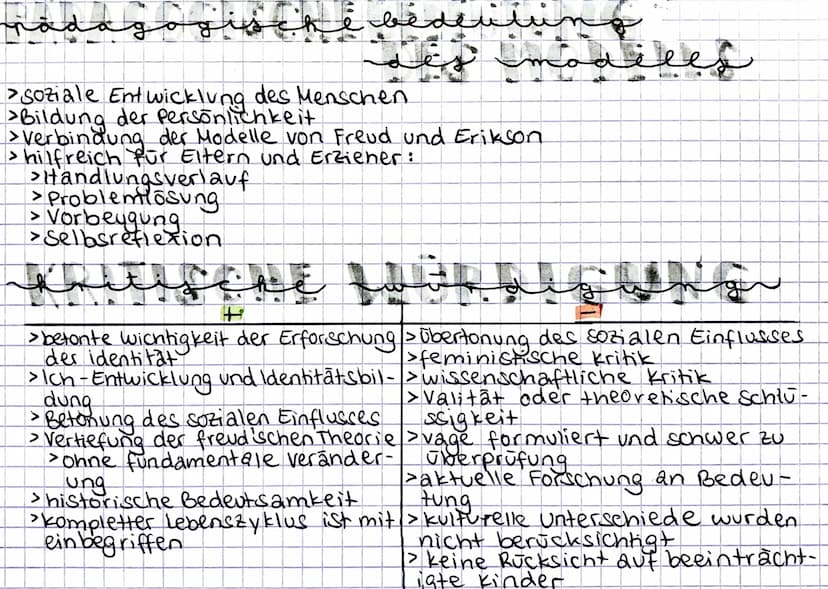 Pädagogische bedeutung
des modelles
>soziale Entwicklung des Menschen
>Bildung der Persönlichkeit
>Verbindung der Modelle von Freud und Erikson
>hilfreich für Eltern und Erzieher:
>Handlungsverlauf
>Problemlösung
>Vorbeugung
>Selbsreflexion
kritische würdigung
+
>betonte Wichtigkeit der Erforschung
der identität
>Ich-Entwicklung und Identitätsbil-
dung
>Betonung des sozialen Einflusses
>Vertiefung der freud'schen Theorie
>ohne fundamentale Veränder-
ung
>historische Bedeutsamkeit
>kompletter Lebenszyklus ist mit
einbegriffen
-
>Übertonung des sozialen Einflusses
>feministische Kritik
>wissenschaftliche Kritik
>Valität oder theoretische Schlü-
ssigkeit
>vage formuliert und schwer zu
überprüfung
>aktuelle Forschung an Bedeu-
tung
>kulturelle Unterschiede wurden
nicht berücksichtigt
>keine Rücksicht auf beeinträcht-
igte Kinder